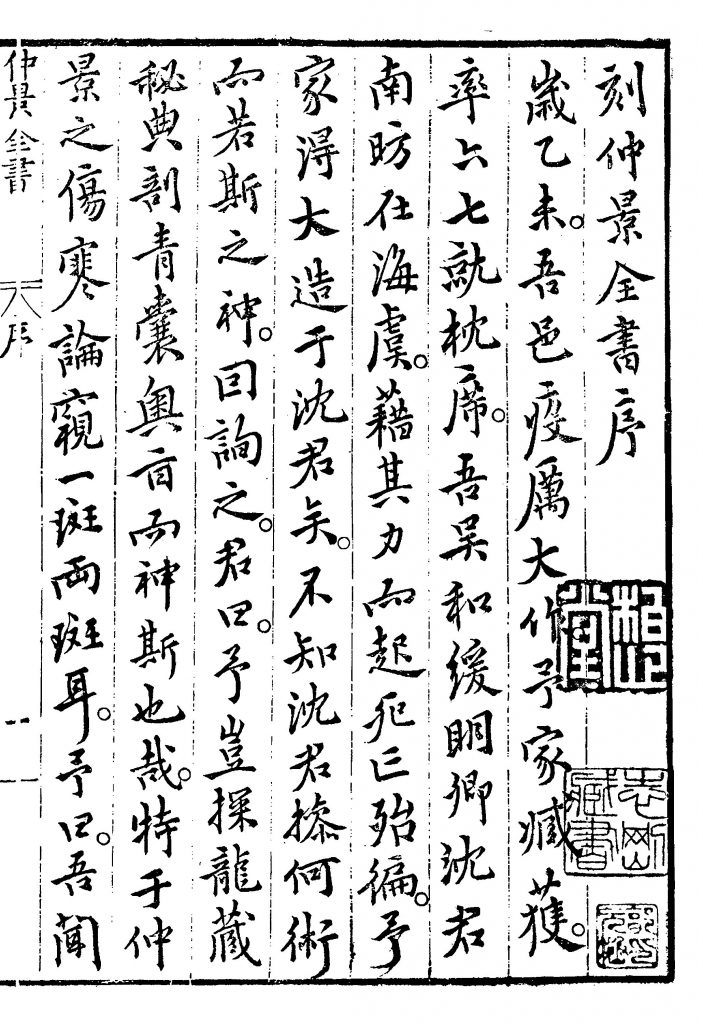 刻仲景全書序
歲乙未。吾邑疫厲大作予家臧獲。
率六七就枕席。吾吳和緩明卿沈君
南昉在海虞。藉其力而起死亡殆徧。予
家淂大造于沈君矣。不知沈君操何術
而若斯之神。因詢之。君曰。予豈探龍藏
秘典剖青囊奧旨而神斯也哉。特于仲
景之傷寒論窺一斑兩斑耳。予曰。吾聞
仲景全書 序